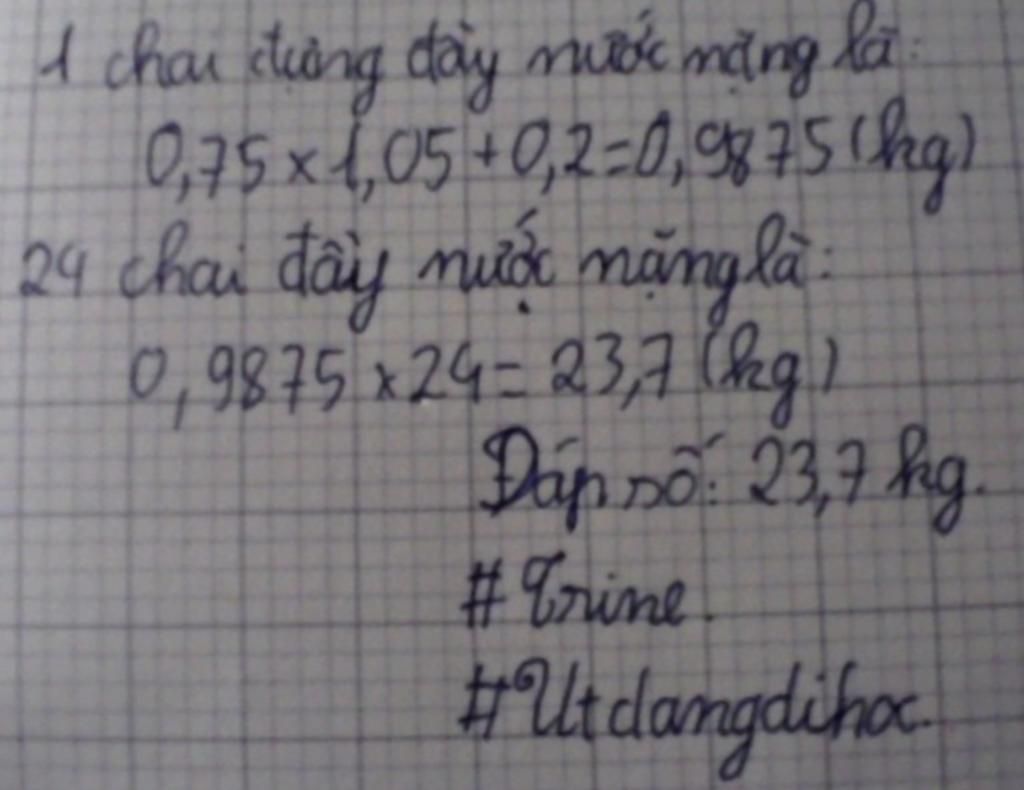 1 chai đựng đầy nước nặng là:
0,75 × 1,05 + 0,2 = 0,9875 (kg)
24 chai đầy nước nặng là:
0,9875 × 24 = 23,7 (kg)
Đáp số: 23,7 kg.
#Trine.
#Utdangdihoc.